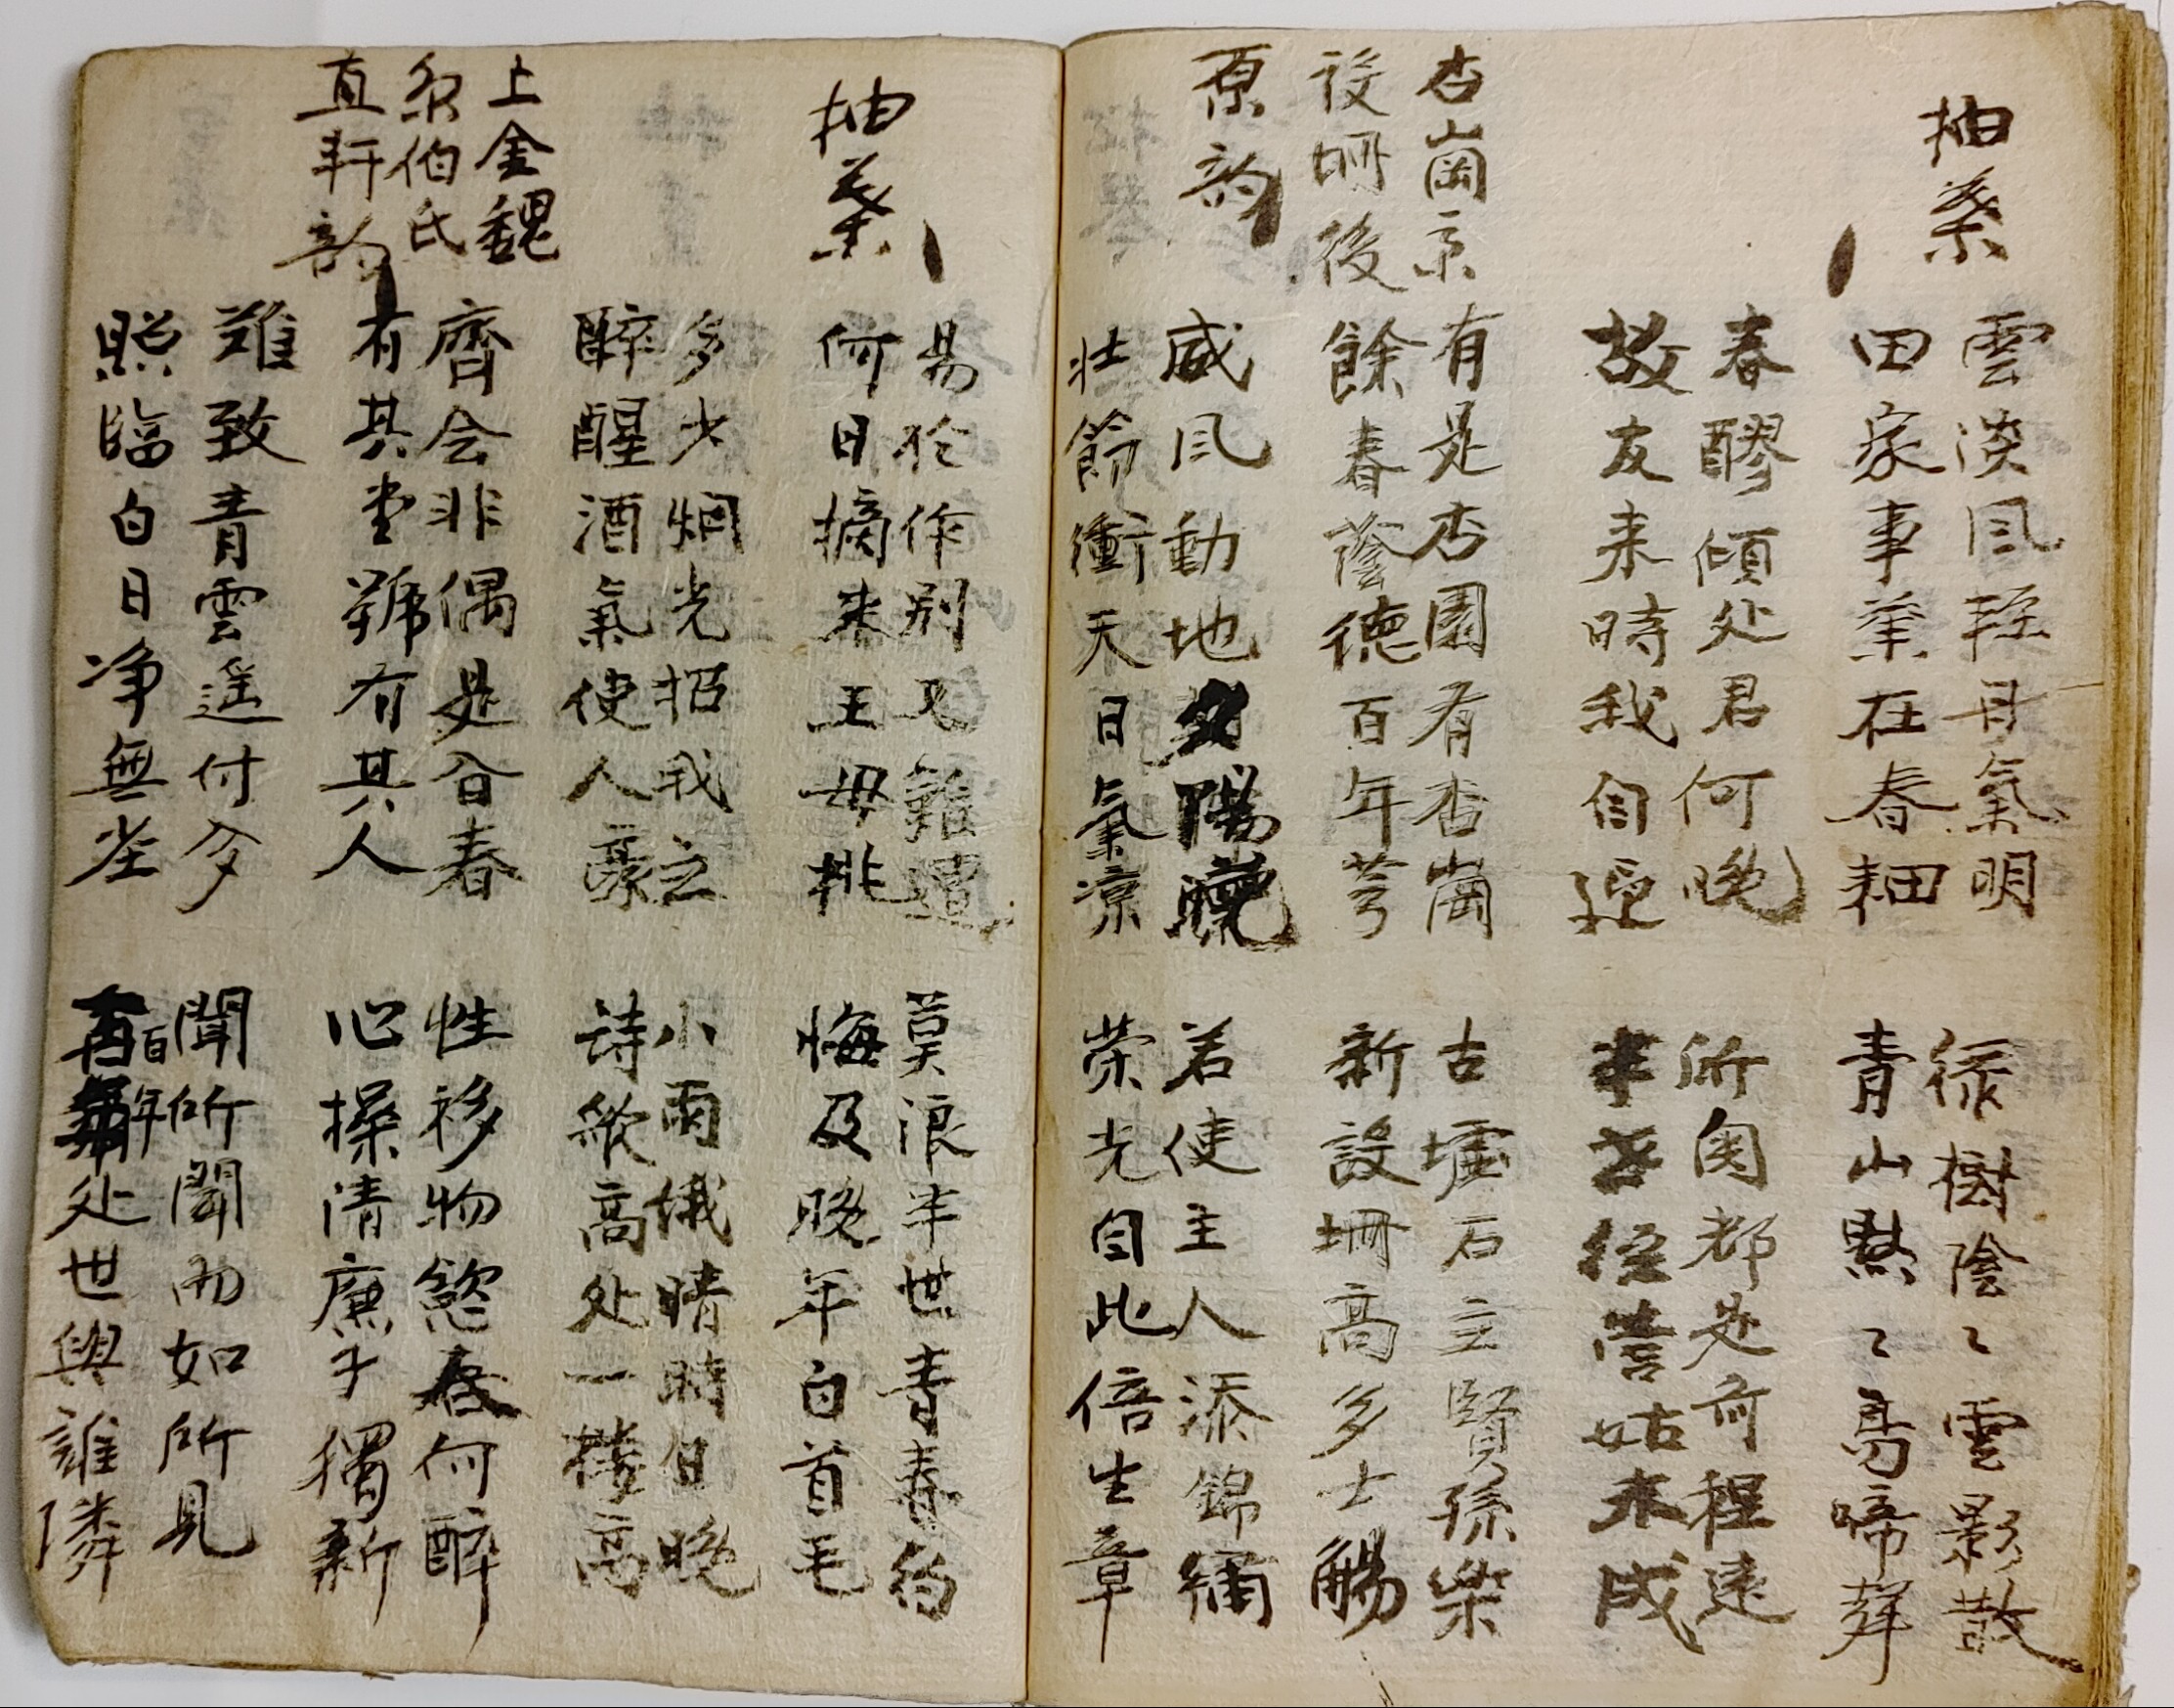 抽葉
雲淡風輕日氣明
田家事業在春耕
春醪傾处君何晚
故友来時我自迎
綠樹陰〻雲影散
青山點〻鳥啼聲
所向都是前程遠
姑未成
杏崗京
設珊後
原韵
有是杏園有杏崗
餘春蔭德百年芳
威風動地夕陽曉
壯飾衝天日氣凉
古墟石立賢孫柴
新設珊高多士觴
若使主人添錦繡
荣光自此倍生章
抽葉
易於作別又難遭
何日摘来王母桃
多少炯光招我之
醉醒酒氣使人豪
莫浪半世青春約
悔及晚年白首毛
小雨俄晴時日晚
詩縱高处一樓高
上金魏
奈伯氏
直軒韵
齊会非偶是合春
有其堂號有其人
難致青雲遥付夕
照臨白日净無尘
性移物慾春何醉
心操清廉子獨新
聞所聞而如所見
百年处世與誰隣